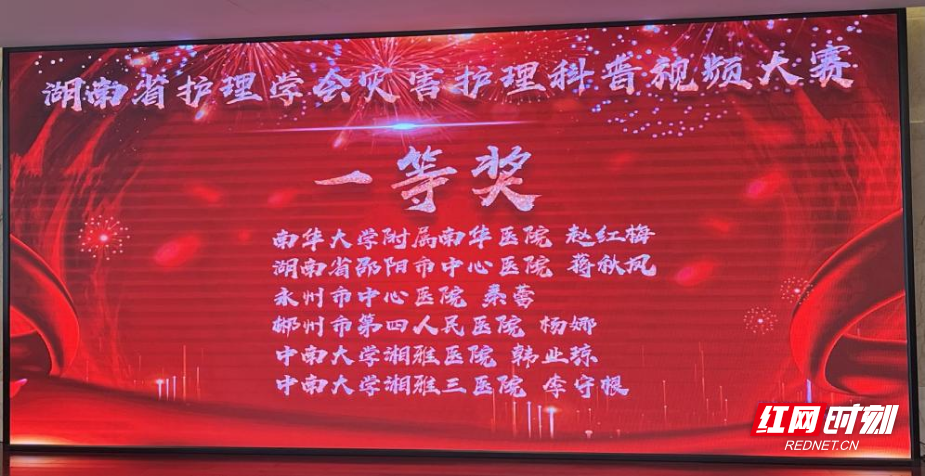 湖南省护理学会灾害护理科普视频大赛
一等奖
南华大学附属南华医院 赵红梅
湖南省邵阳市中心医院 蒋秋凤
永州市中心医院 秦蕾
郴州市第四人民医院 杨娜
中南大学湘雅医院 韩业琼
中南大学湘雅三医院 李守根
红网时刻
REDNET.CN